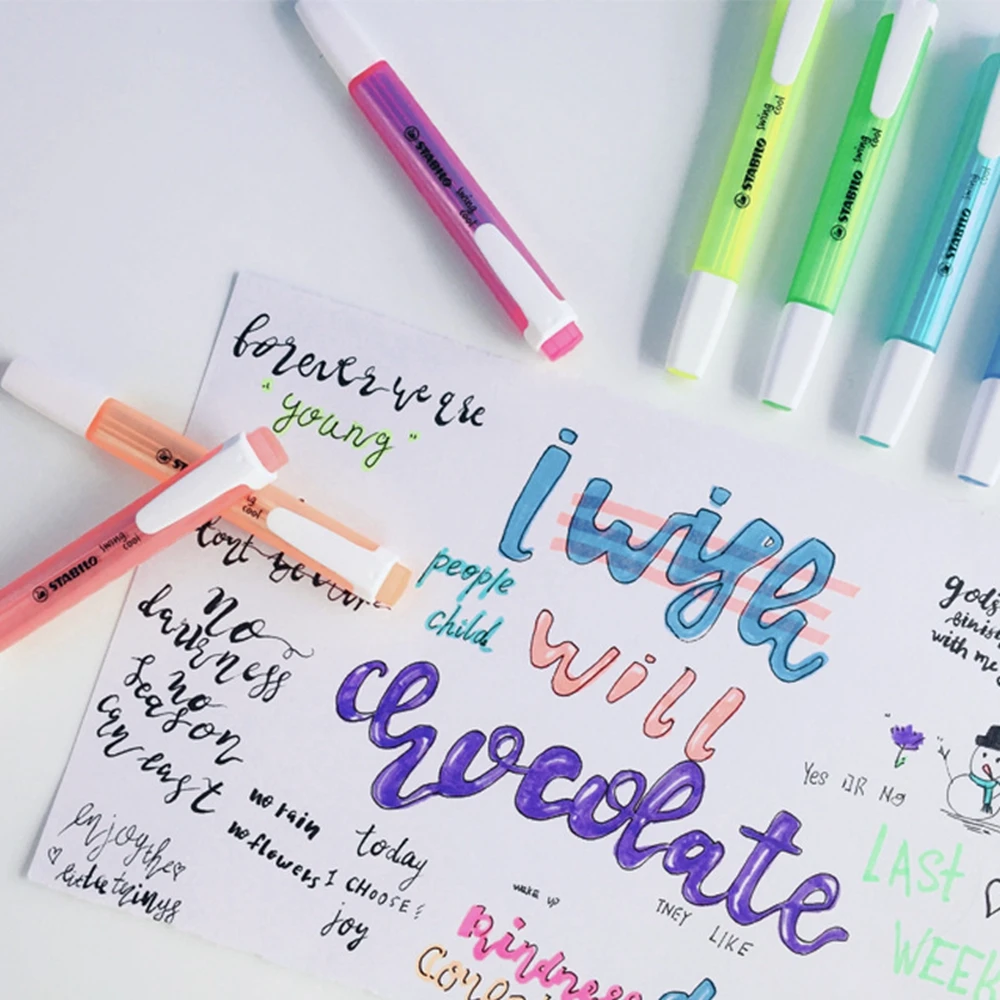 STABILO swing cool
STABILO swing cool
STABILO swing cool
STABILO swing cool
STABILO swing cool
forever we are
"young"
I wish
people
child
will
chocolate
No
darkness
no
season
can
last
enjoy the
little things
no rain
no flowers
today
I CHOOSE
joy
wake up
THEY LIKE
kindness
gods
with me
Yes OR No
LAST
WEEK